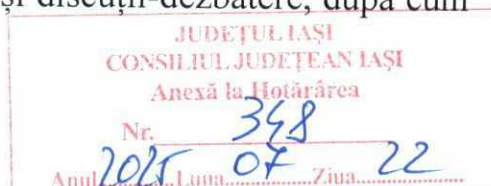 și discuții-dezbatere, după cum
JUDEȚUL IAȘI
CONSILIUL JUDEȚEAN IAȘI
Anexă la Hotărârea
Nr. 348
Anul 2025 Luna 07 Ziua 22